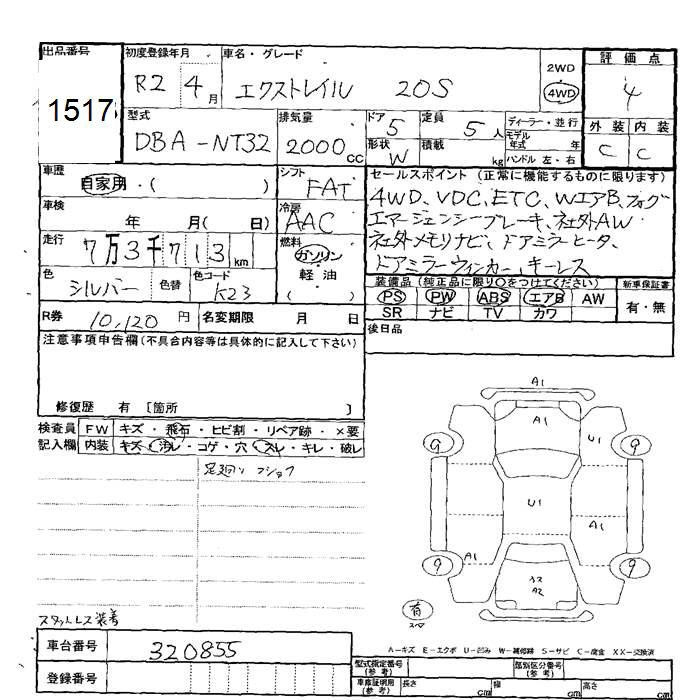 出品番号 初度登録年月 車名・グレード 評価点
1517 R2 4月 エクストレイル 20S 2WD 4WD 4
型式 排気量 ドア 定員 ディーラー・並行 外装 内装
DBA-NT32 2000cc 5 5人 モデル年式 年 C C
形状 W 積載 kg ハンドル 左・右
車歴 シフト セールスポイント(正常に機能するものに限ります)
自家用・( ) FAT 4WD、VDC、ETC、WエアB、フォグ
車検 冷房 エマージェンシーブレーキ、社外AW、
年 月( 日) AAC 社外メモリナビ、ドアミラーヒータ、
走行 7万3千713km 燃料 ガソリン・軽油 ドアミラーウィンカー、キーレス
色 シルバー 色替 色コード K23 ( )
装備品(純正品に限り○をつけてください) 新車保証書
PS PW ABS エアB AW 有・無
SR ナビ TV カワ
R券 10,120円 名変期限 月 日
後日品
注意事項申告欄(不具合内容等は具体的に記入して下さい)
修復歴 有 [箇所 ]
検査員 FW キズ・飛石・ヒビ割・リペア跡・×要
記入欄 内装 キズ・汚レ・コゲ・穴・スレ・キレ・破レ
足廻り
A1
A1
U1
9 9
U1
A1
A1
9 9
A2
有
スペア
スタットレス装着
A-キズ E-エクボ U-凹み W-補修跡 S-サビ C-腐食 XX-交換済
車台番号 320855
登録番号
型式指定番号(参考) 類別区分番号(参考)
車庫証明用(参考) 長さ cm 幅 cm 高さ cm